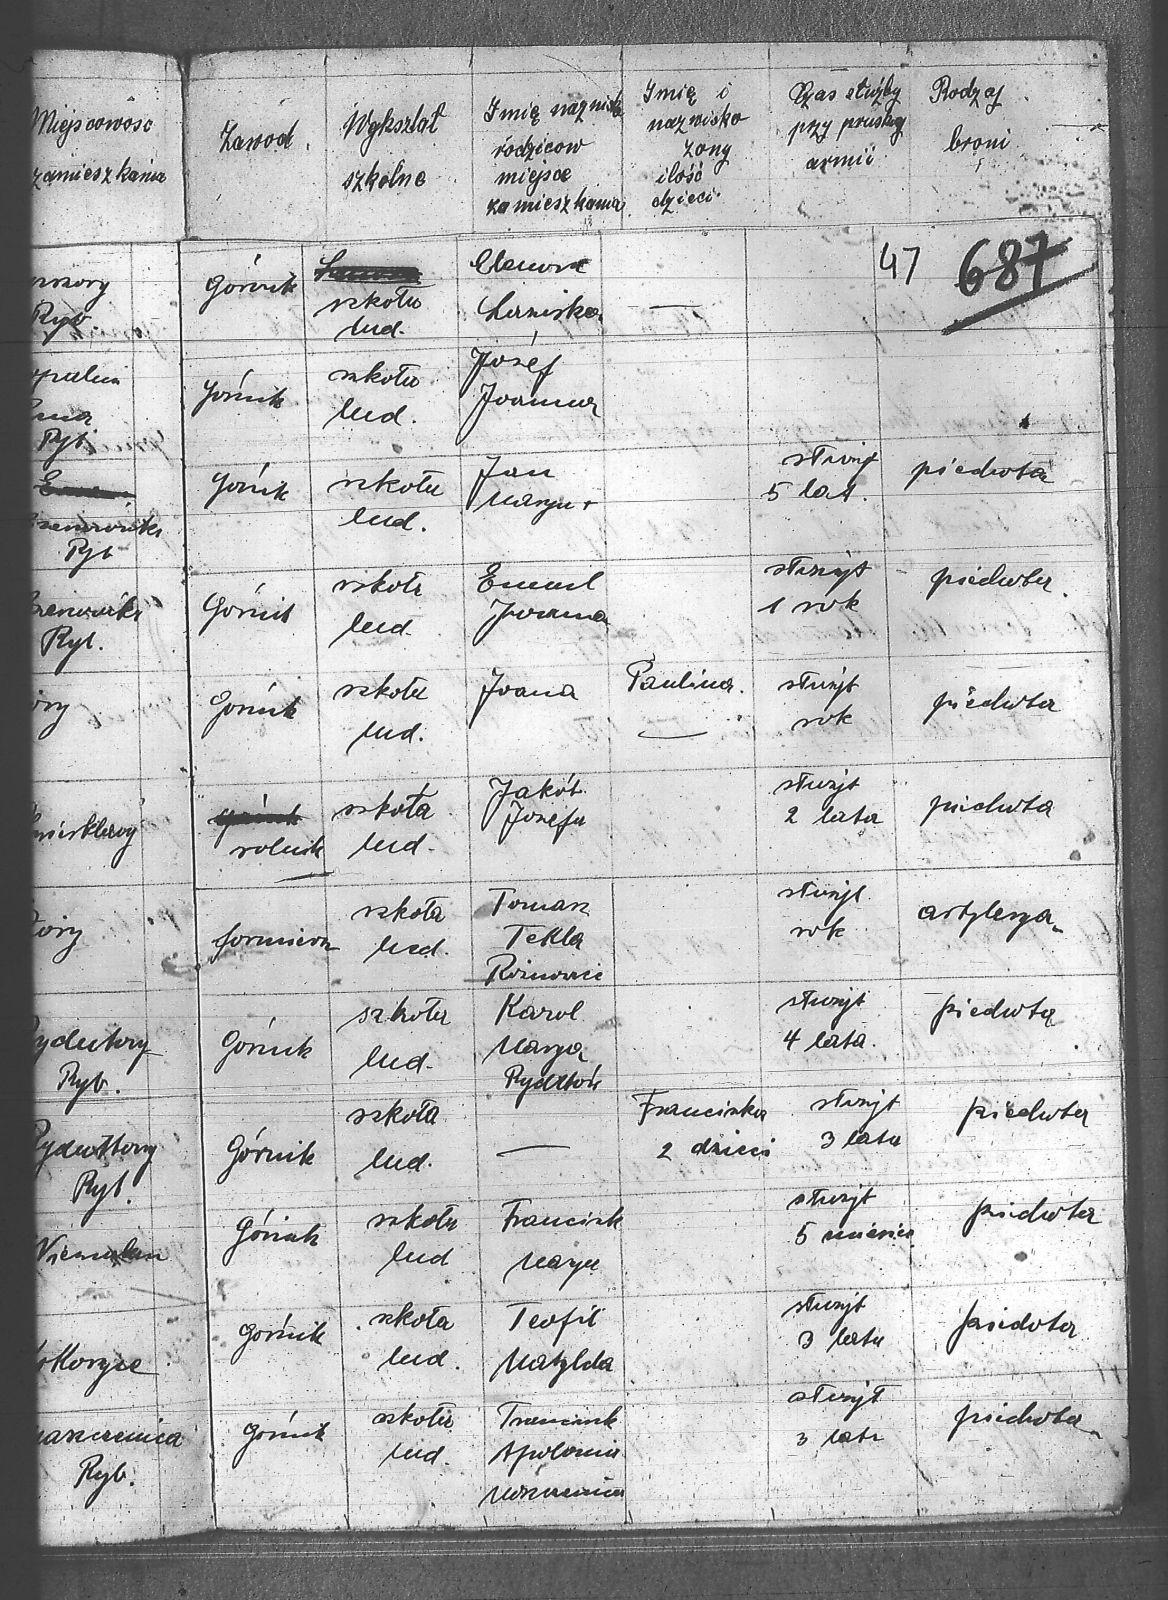 Miejscowość
zamieszkania
Zawód
Wykształ
szkolne
Imię nazwisk
rodziców
miejsce
zamieszkania
Imię i
nazwisko
żony
ilość
dzieci
Czas służby
przy pruskiej
armii
Rodzaj
broni
47
687
Ryb
Górnik
szkoła
lud.
Eleonora
—
Ryb
Górnik
szkoła
lud.
Józef
Joanna
Ryb
Górnik
szkoła
lud.
Jan
Marya +
służył
5 lat.
piechota
Ryb.
Górnik
szkoła
lud.
Emanl
Joanna
służył
1 rok
piechota
Górnik
szkoła
lud.
Joana
Paulina.
—
służył
rok
piechota
rolnik
szkoła
lud.
Jakób
Jozefa
służył
2 lata
piechota
formierz
szkoła
lud.
Tomasz
Tekla
służył
rok
artylerya
Rydułtowy
Ryb.
Górnik
szkoła
lud.
Karol
Marya
Rydułtów
służył
4 lata.
piechota
Rydułtowy
Ryb.
Górnik
szkoła
lud.
—
Franciszka
2 dzieci
służył
3 lata
piechota
Górnik
szkoła
lud
Franciszk
Marya
służył
5 miesięc
piechota
Kokoszyce
Górnik
szkoła
lud.
Teofil
Matylda
służył
3 lata
piechota
Ryb.
Górnik
szkoła
lud.
Franciszk
Apolonia
służył
3 lata
piechota